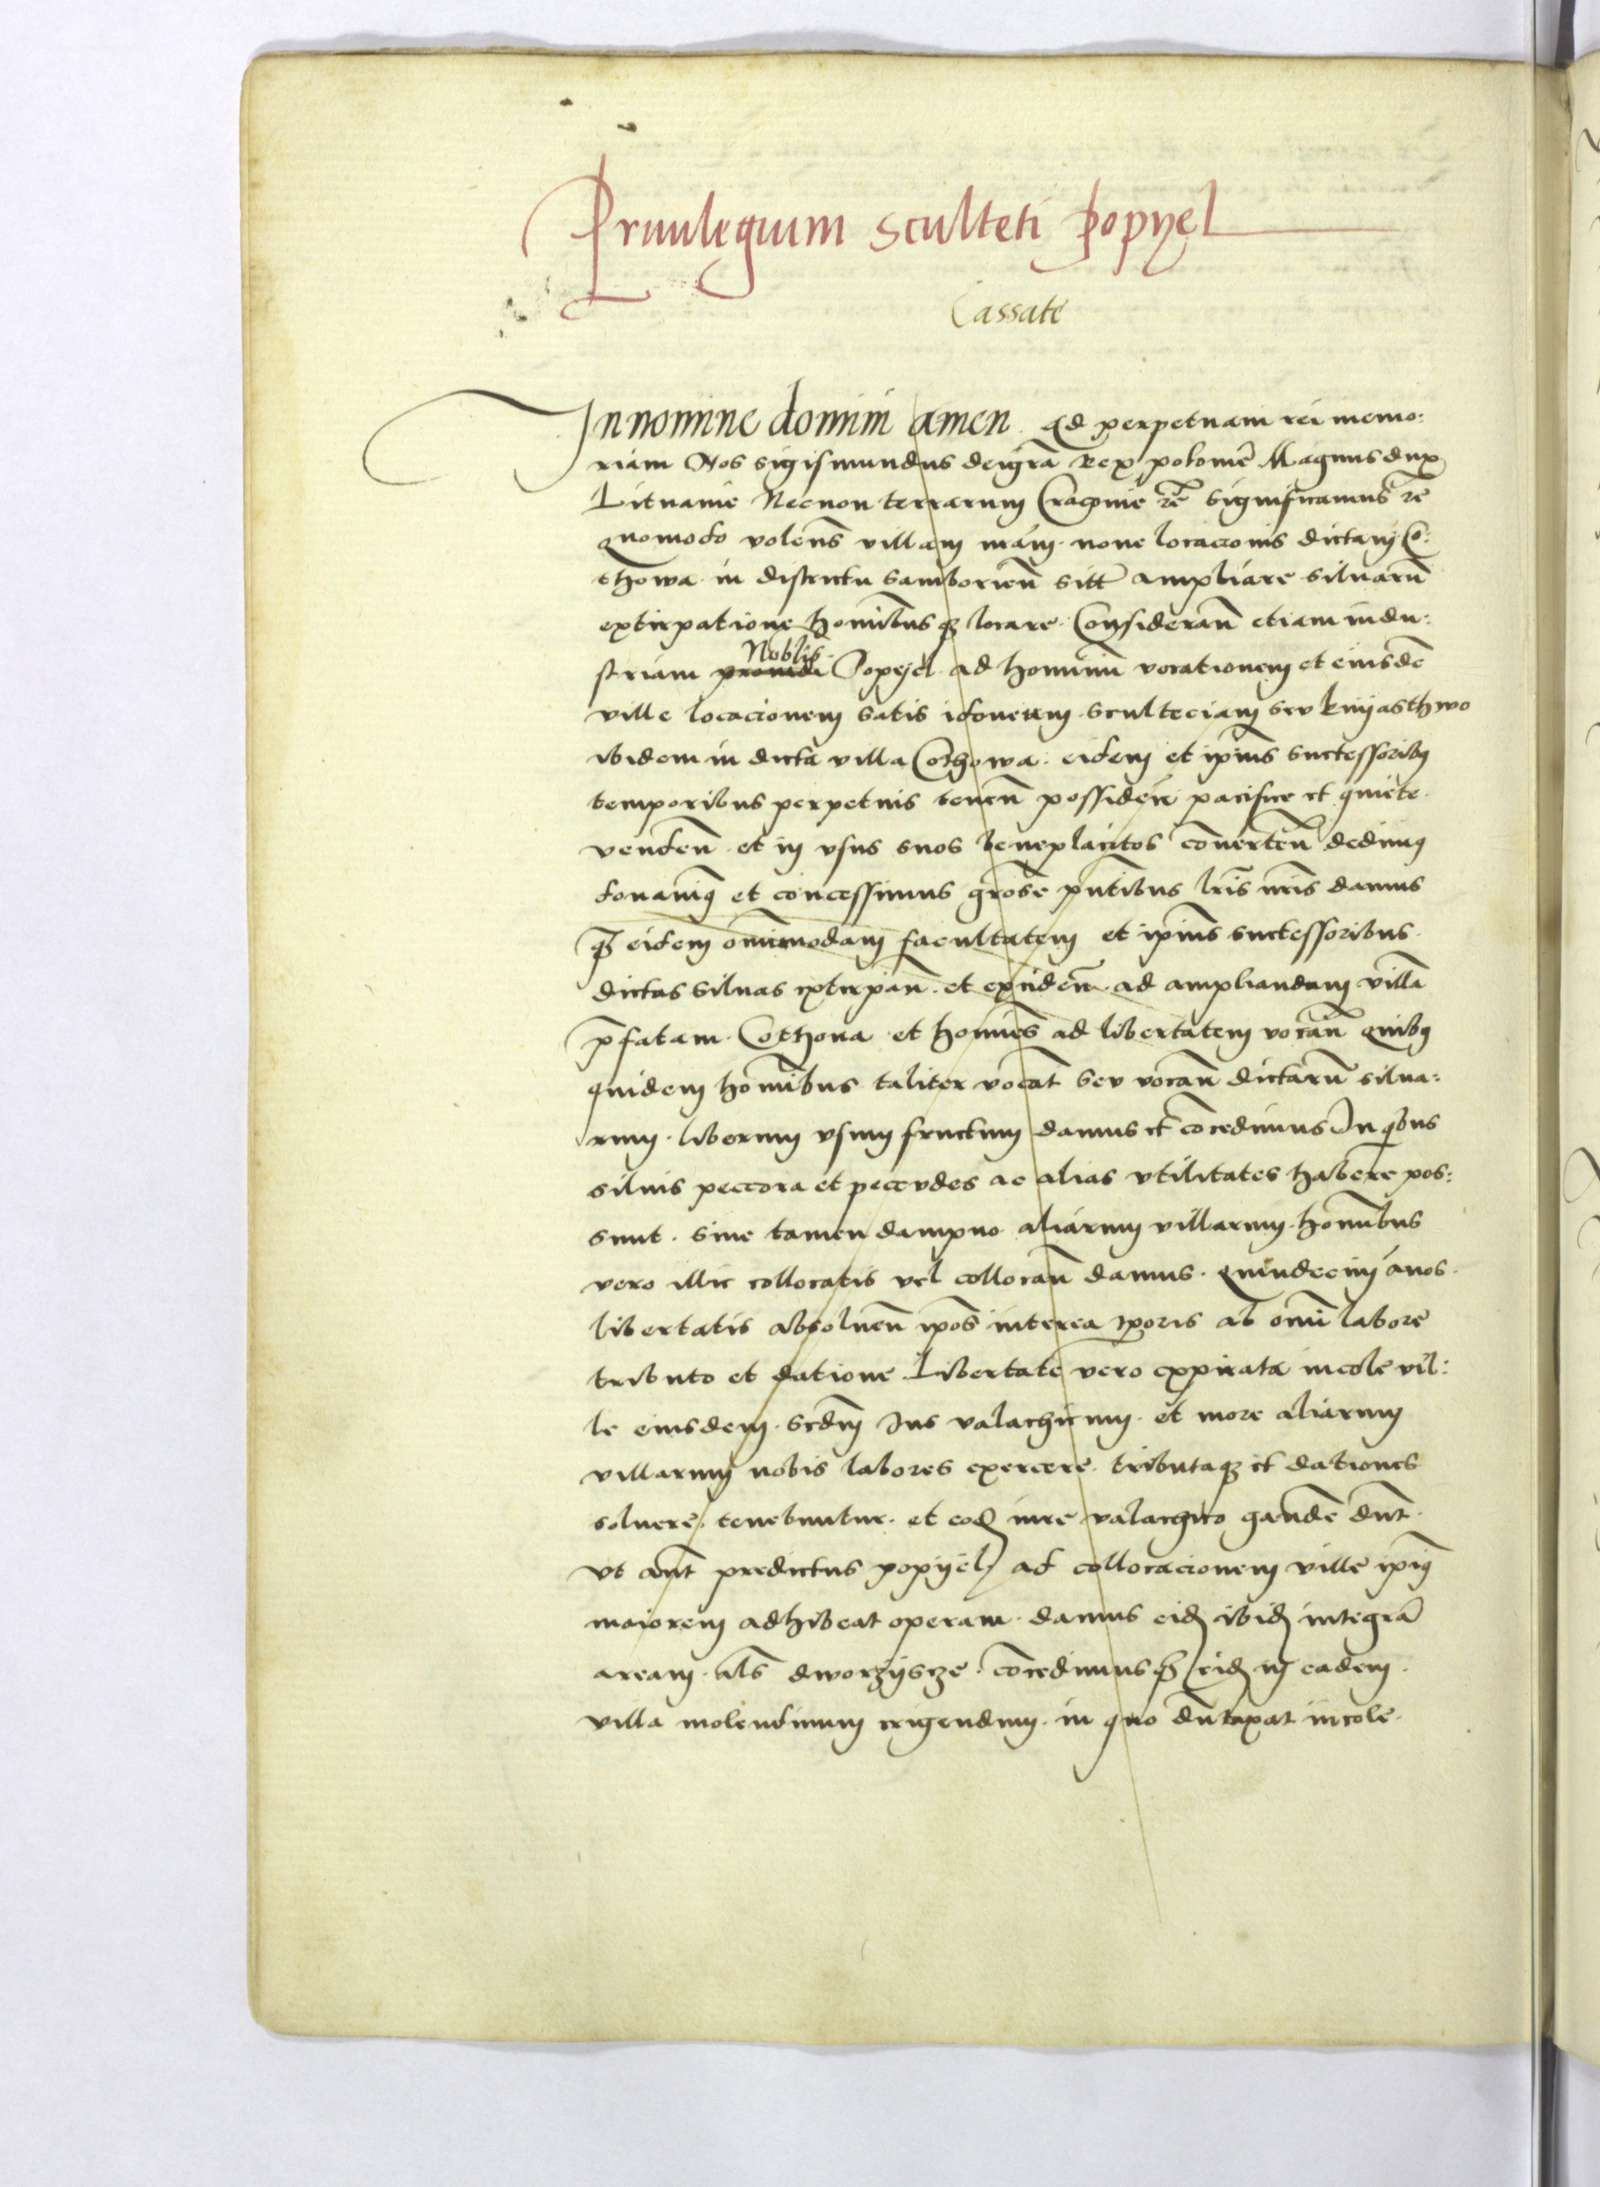 Priuilegium sculteti Popyel
Cassate
In nomine domini amen. Ad perpetuam rei memo:
riam Nos Sigismundus dei grã Rex poloniẽ Magnus dux
Lituanie Necnon terrarum Cracouie rẽ significamus rẽ
Quomodo volens villam nrãm noue locacionis dictam Co:
thowa in districtu samborien̄ sitã ampliare siluarũ
extirpatione homĩbusq3 locare. Considerañ etiam indu:
striam prouidi Noblis Popyel ad hominũ vocationem et eiusdẽ
ville locacionem satis idoneum sculteciam seu knyasthwo
ibidem in dicta villa Cothowa. eidem et ipsius successoribus
temporibus perpetuis teneñ possideñ pacifice et quiete.
vendeñ et in vsus suos beneplacitos cõuerteñ dedimus
donauimus et concessimus grõse pñtibus lris nris damus
q3 eidem omimodam facultatem et ipsius successoribus.
dictas siluas extirpañ et excideñ ad ampliandam villã
p̃fatam Cothowa et homies ad libertatem vocañ Quibus
quidem homĩbus taliter vocat seu vocañ dictarũ silua:
rum. liberum vsumfructum damus et cõcedimus In qbus
siluis peccora et peccudes ac alias vtilitates habere pos:
sunt. sine tamen dampno aliarum villarum. homĩbus
vero illic collocatis vel collocañ damus. quindecim ãnos.
libertatis absolueñ ipõs interea tporis ab omi labore
tributo et datione Libertate vero expirata incole vil:
le eiusdem scdm Ius valachicum et more aliarum
villarum nobis labores exercere tributaq3 et dationes
soluere tenebuntur. et eod iure valachico gaudẽ dñt.
Vt aut predictus popyel ad collocacionem ville ipius
maiorem adhibeat operam. damus eid ibid integrã
aream als dworzysze. cõcedimusq3 eid in eadem
villa molendinum erigendum. in quo dũtaxat incole.